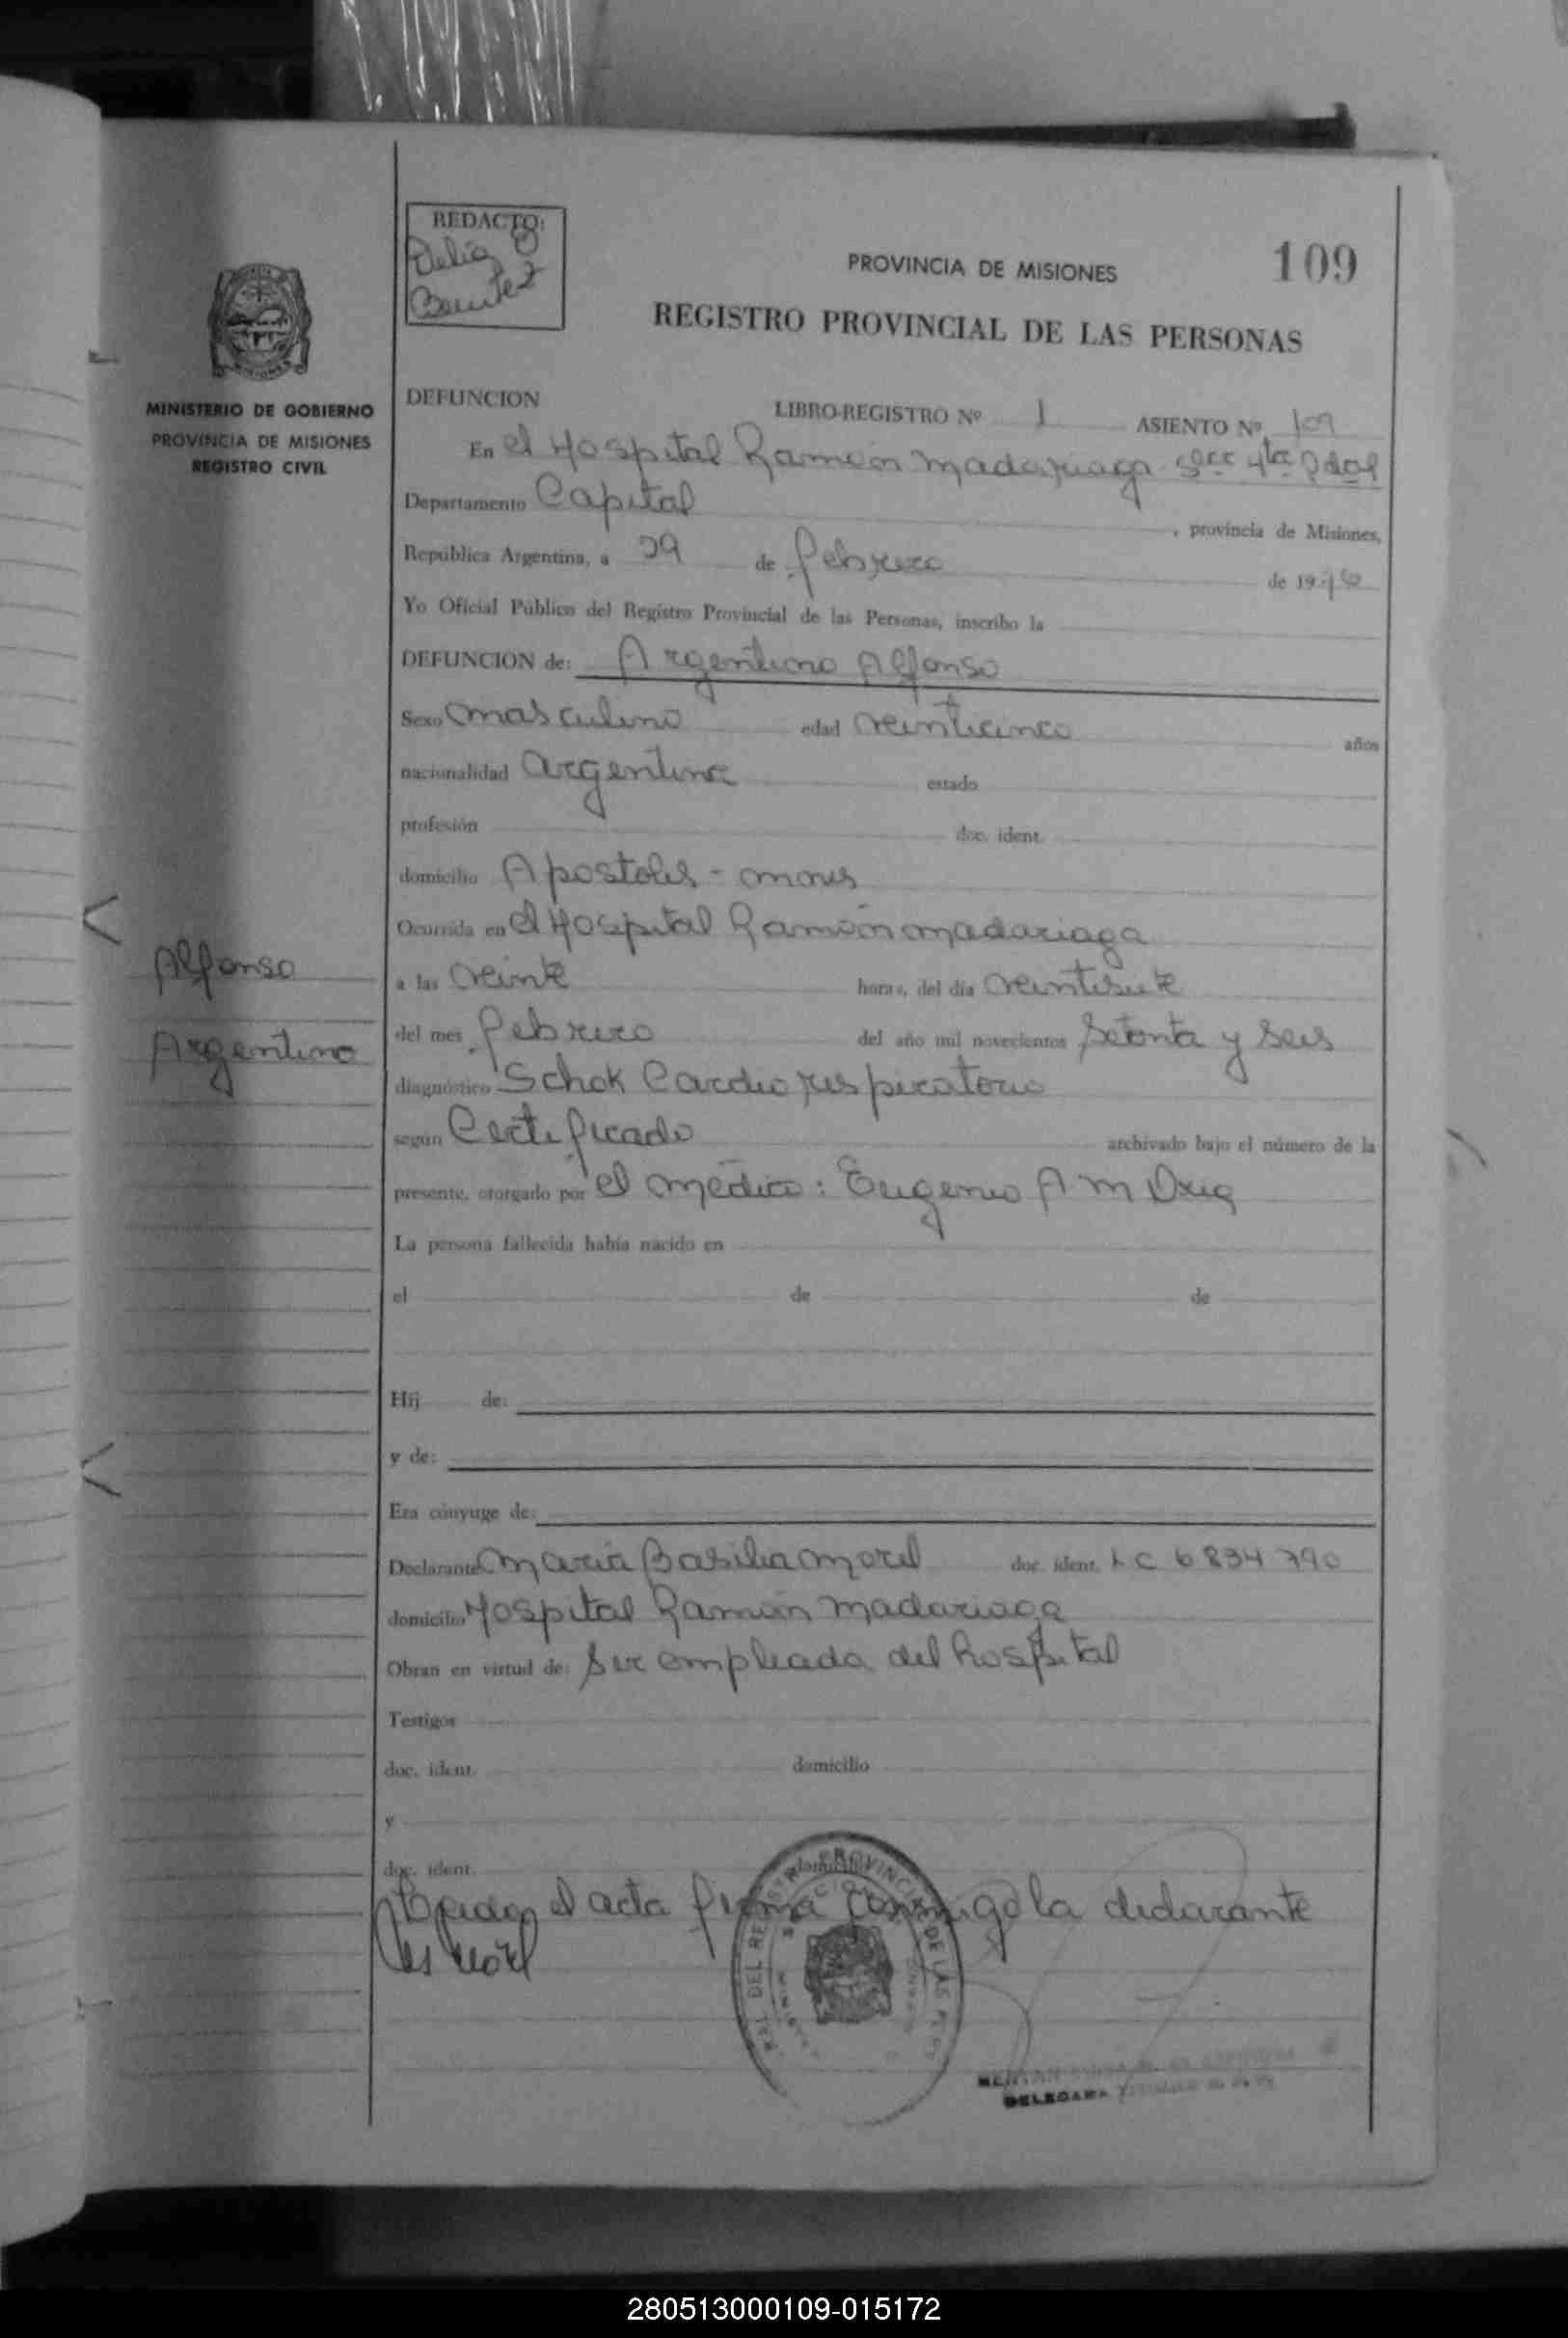 REDACTO:
Delia
Benitez
PROVINCIA DE MISIONES
109
REGISTRO PROVINCIAL DE LAS PERSONAS
MINISTERIO DE GOBIERNO
PROVINCIA DE MISIONES
REGISTRO CIVIL
DEFUNCION LIBRO-REGISTRO Nº 1 ASIENTO Nº 109
En el Hospital Ramón Madariaga Secc 4ta
Departamento Capital , provincia de Misiones,
República Argentina, a 29 de febrero de 1976
Yo Oficial Público del Registro Provincial de las Personas, inscribo la
DEFUNCION de: Argentino Alfonso
Sexo masculino edad veinticinco años
nacionalidad argentina estado
profesión doc. ident.
domicilio Apostoles - mnes
Ocurrida en el Hospital Ramón madariaga
Alfonso
Argentino
a las veinte horas, del día veintisiete
del mes febrero del año mil novecientos setenta y seis
diagnóstico Schok Cardio respiratorio
según Certificado archivado bajo el número de la
presente, otorgado por el médico: Eugenio A M
La persona fallecida había nacido en
el de de
Hij de:
y de:
Era cónyuge de:
Declarante María Basilia Morel doc. ident. LC 6834790
domicilio Hospital Ramón Madariaga
Obran en virtud de: ser empleada del hospital
Testigos
doc. ident. domicilio
y
doc. ident. domicilio
Leida el acta firma conmigo la declarante
DEL REGISTRO PROVINCIAL DE LAS
DELEGADA
280513000109-015172